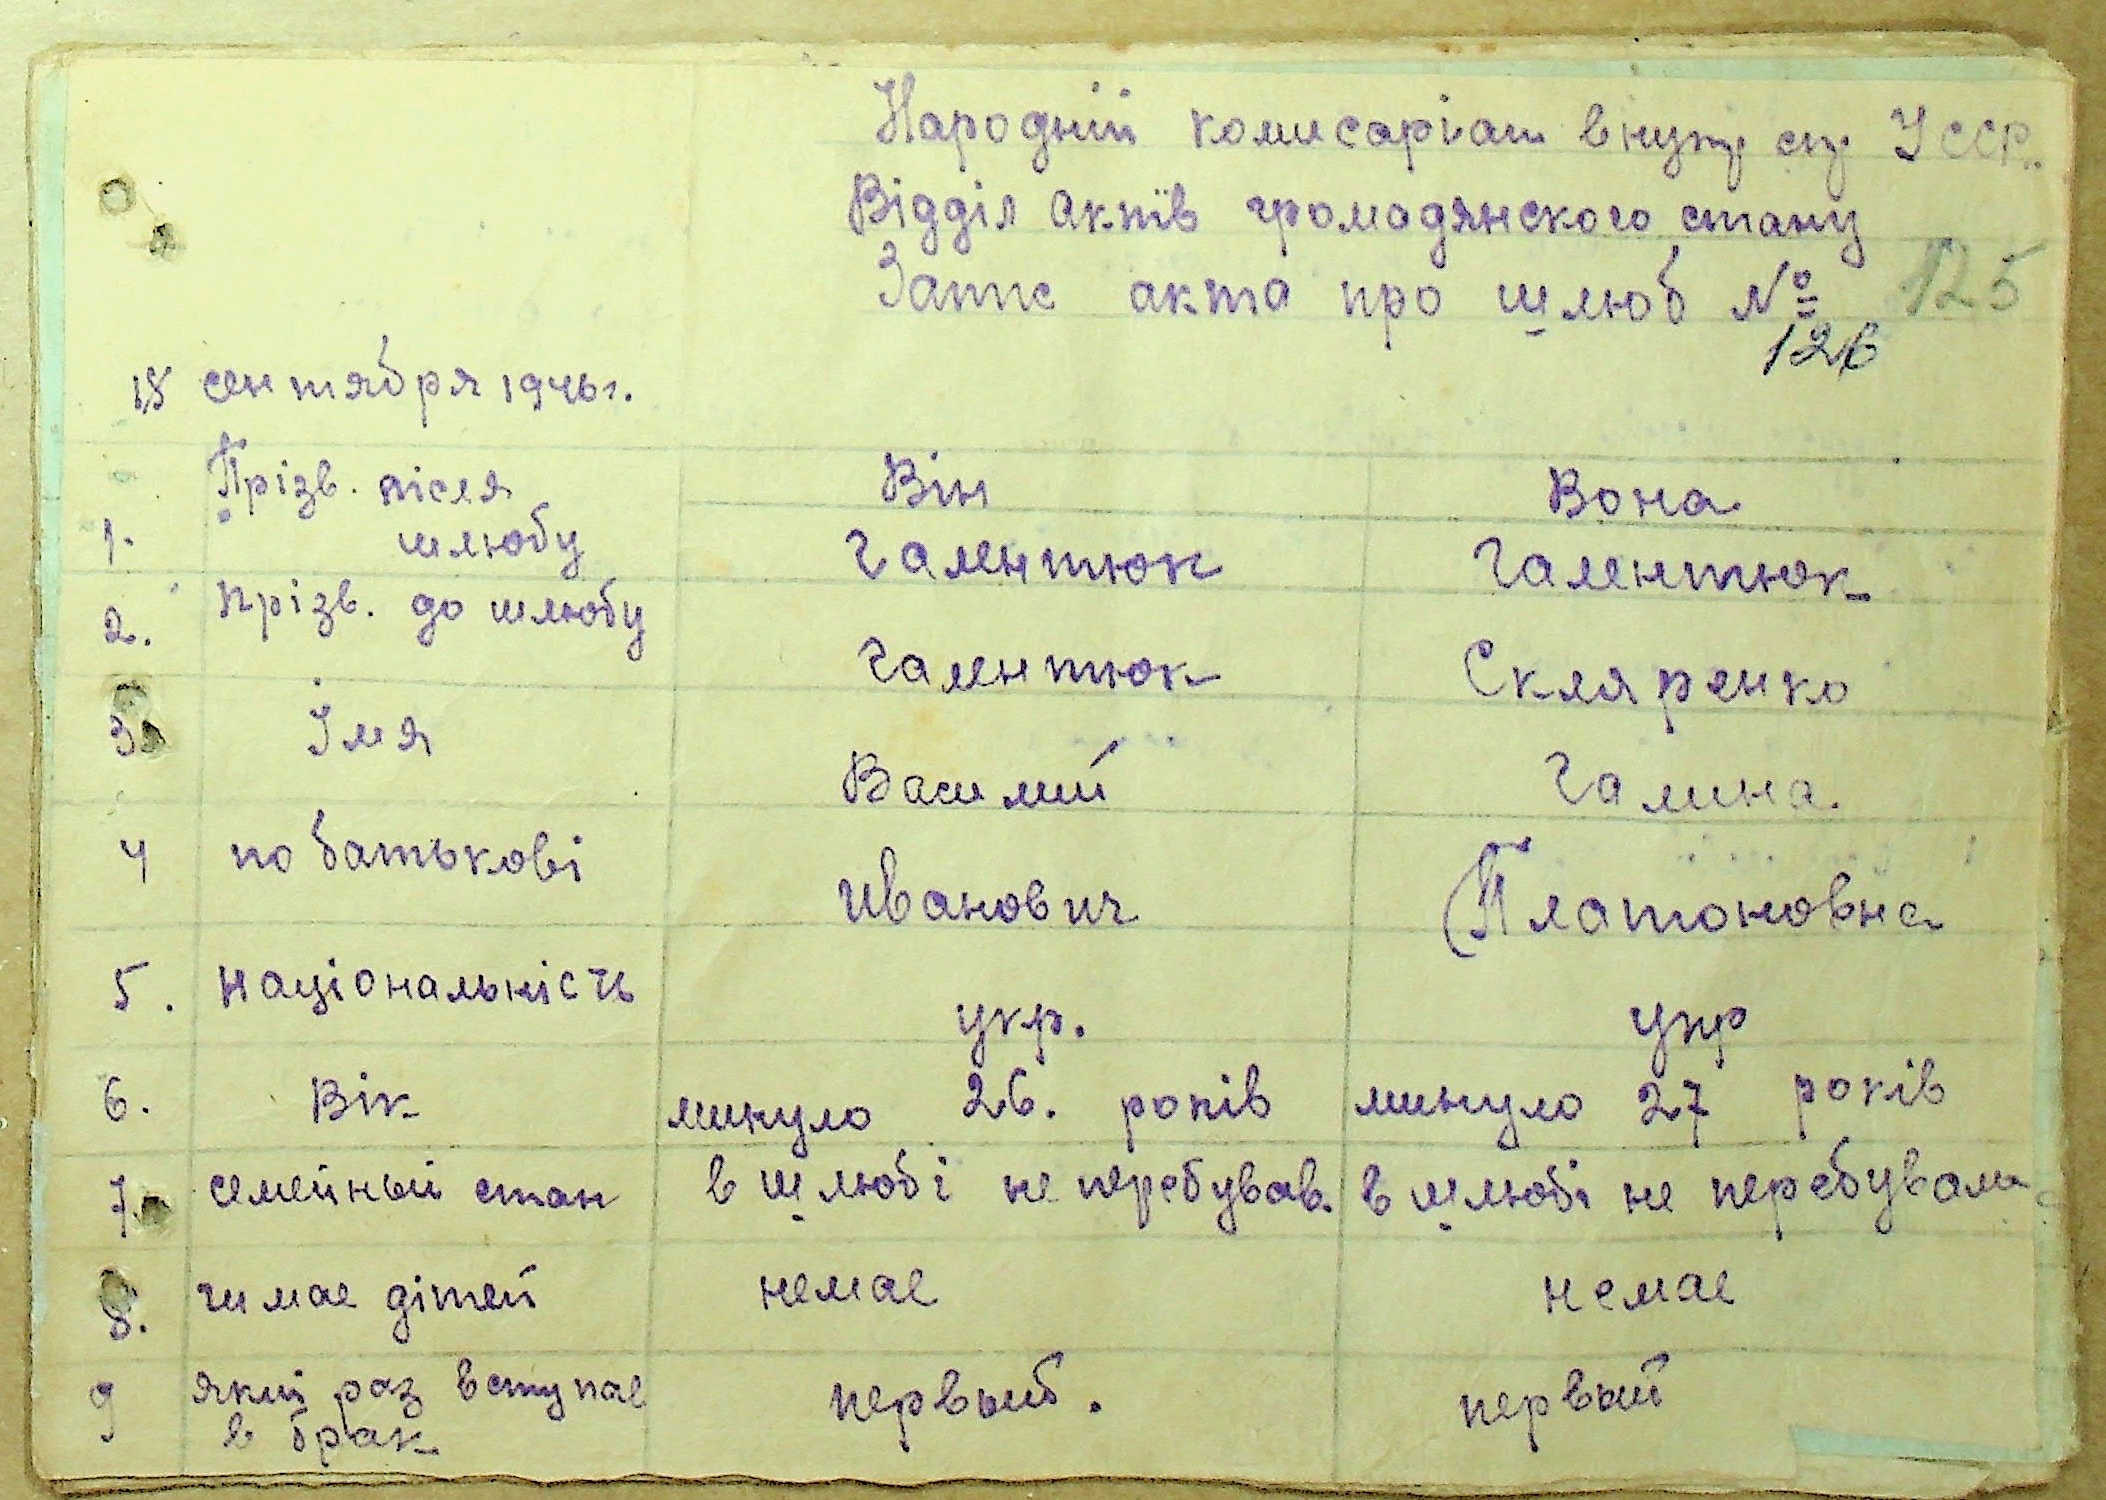 Народній комисаріат внутр спр УССР.
Відділ актів громадянского стану
Запис акта про шлюб № 125
126
18 сентября 1946 г.
Прізв. після Він Вона
1. шлюбу Галентюк Галентюк
2. прізв. до шлюбу Галентюк Скляренко
3. Імя Василий Галина.
4 по батькові Иванович Платоновна
5. Національність укр. укр
6. Вік минуло 26. років минуло 27 років
7. семейный стан в шлюбі не перебував. в шлюбі не перебувала
8. чи мае дітей немае немае
9 який раз вступае первый. первый
в брак